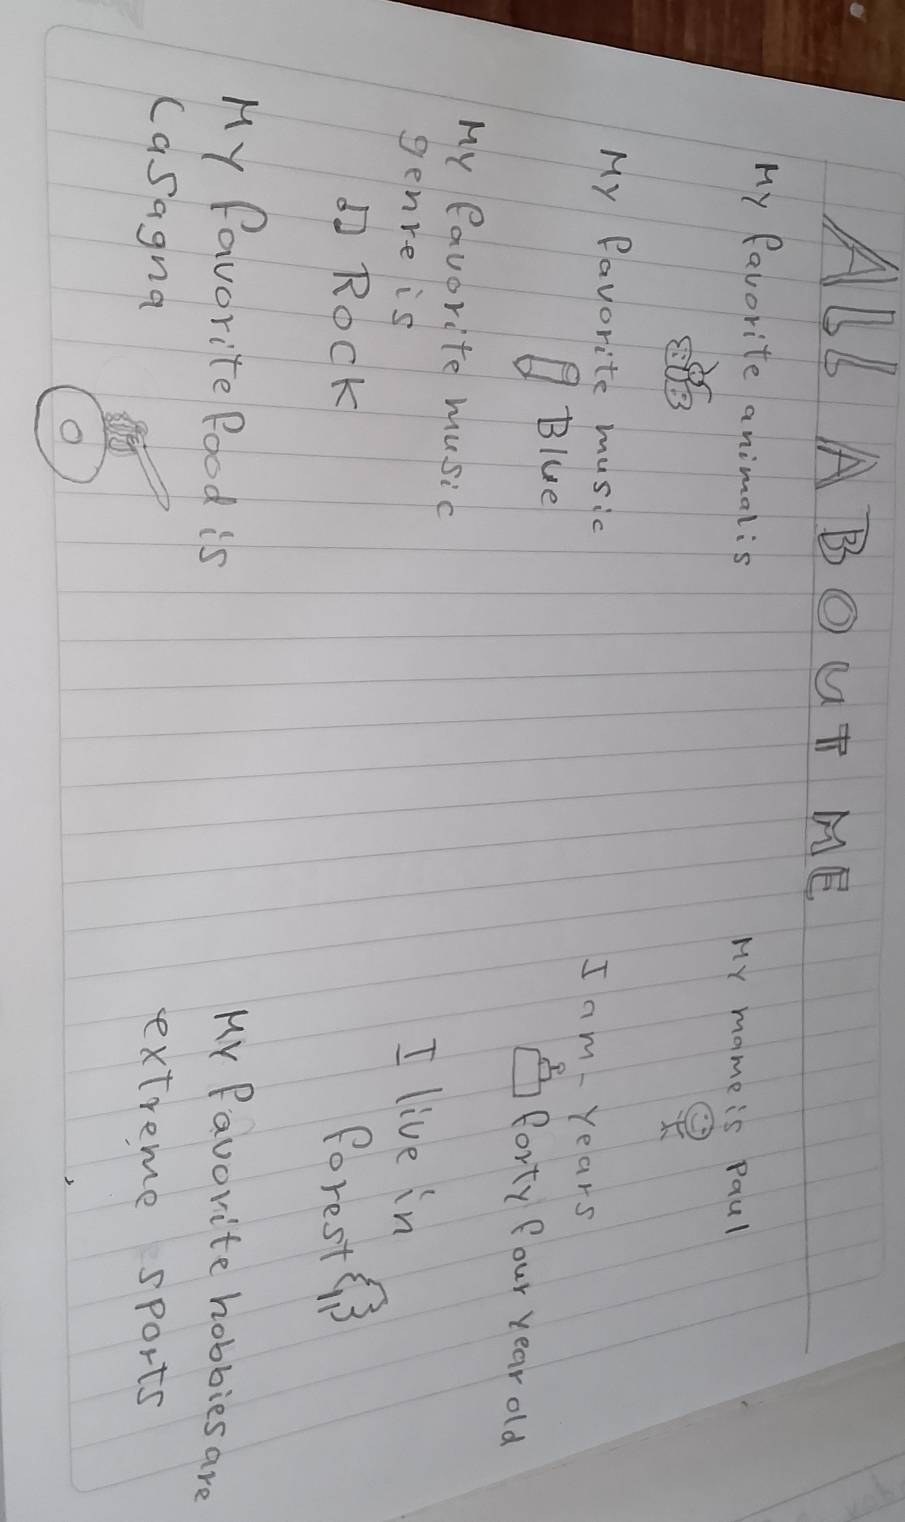 ALL ABOUT ME
My favorite animal is
My favorite music
Blue
My favorite music
genre is
ROCK
MY favorite food is
Casagna
My mame is Paul
I am - Years
forty four year old
I live in
forest
My favorite hobbies are
extreme sports